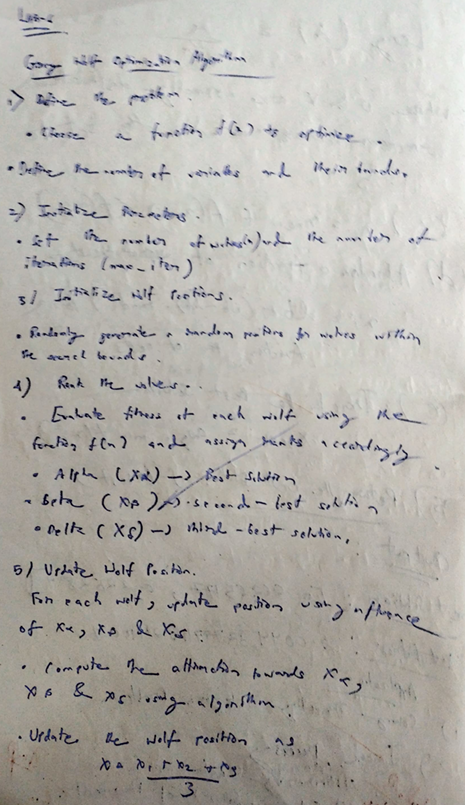 Grey Wolf Optimization Algorithm
1) Define the problem.
• Choose a function f(x) to optimize.
• Define the number of variables and their bounds.
2) Initialize Parameters.
• Set the number of wolves(n) and the number of
iterations (max_iter)
3) Initialize Wolf Positions.
• Randomly generate n random positions for wolves within
the search bounds.
4) Rank the wolves..
• Evaluate fitness of each wolf using the
function f(x) and assign ranks accordingly.
• Alpha (Xα) → Best solution
• Beta (Xβ) → second-best solution
• Delta (Xδ) → third-best solution,
5) Update Wolf Position.
For each wolf, update position using influence
of Xα, Xβ & Xδ.
• Compute the attraction towards Xα,
Xβ & Xδ using algorithm.
• Update the wolf position as
X1 + X2 + X3
3